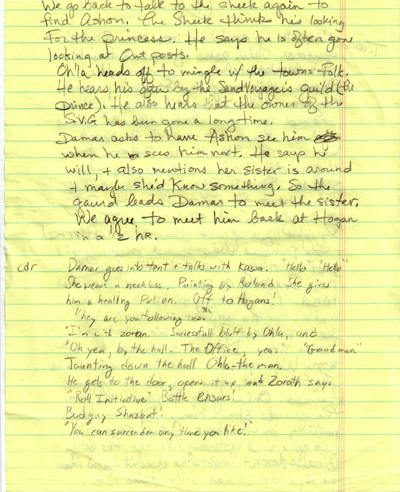 We go back to talk to the Sheek again to
find Ashon. The Sheek thinks his looking
For the princess. He says he is often gone
looking at Out posts.
Ohla heads off to mingle w/ the towns folk.
He hears his by the SandVoyagers guild (the
prince). He also hears that the owner of the
S.V.G has been gone a long time.
Damar asks to have Ashon see him
when he sees him next. He says he
will, + also mentions her sister is around
+ maybe she'd Know something. So the
gaurd leads Damar to meet the sister.
We agree to meet him back at Hogan
in a 1/2 hR.
cdr Damar goes into tent + talks with Kawa. "Hello" "Hello"
She wears a neckless, Painting by Roland. She gives
him a healing Potion. Off to Hogans!
"Hey are you following me."
"I'm with zoran." Successfull bluff by Ohla, and
"Oh yea, by the hall. The Office, yea." "Good man"
Taunting down the hall Ohla-the man.
He gets to the door, opens it up, and Zorath says
"Roll Initiative" Battle Ensues!
Budguy Shazbut!
"You can surrender any time you like!"